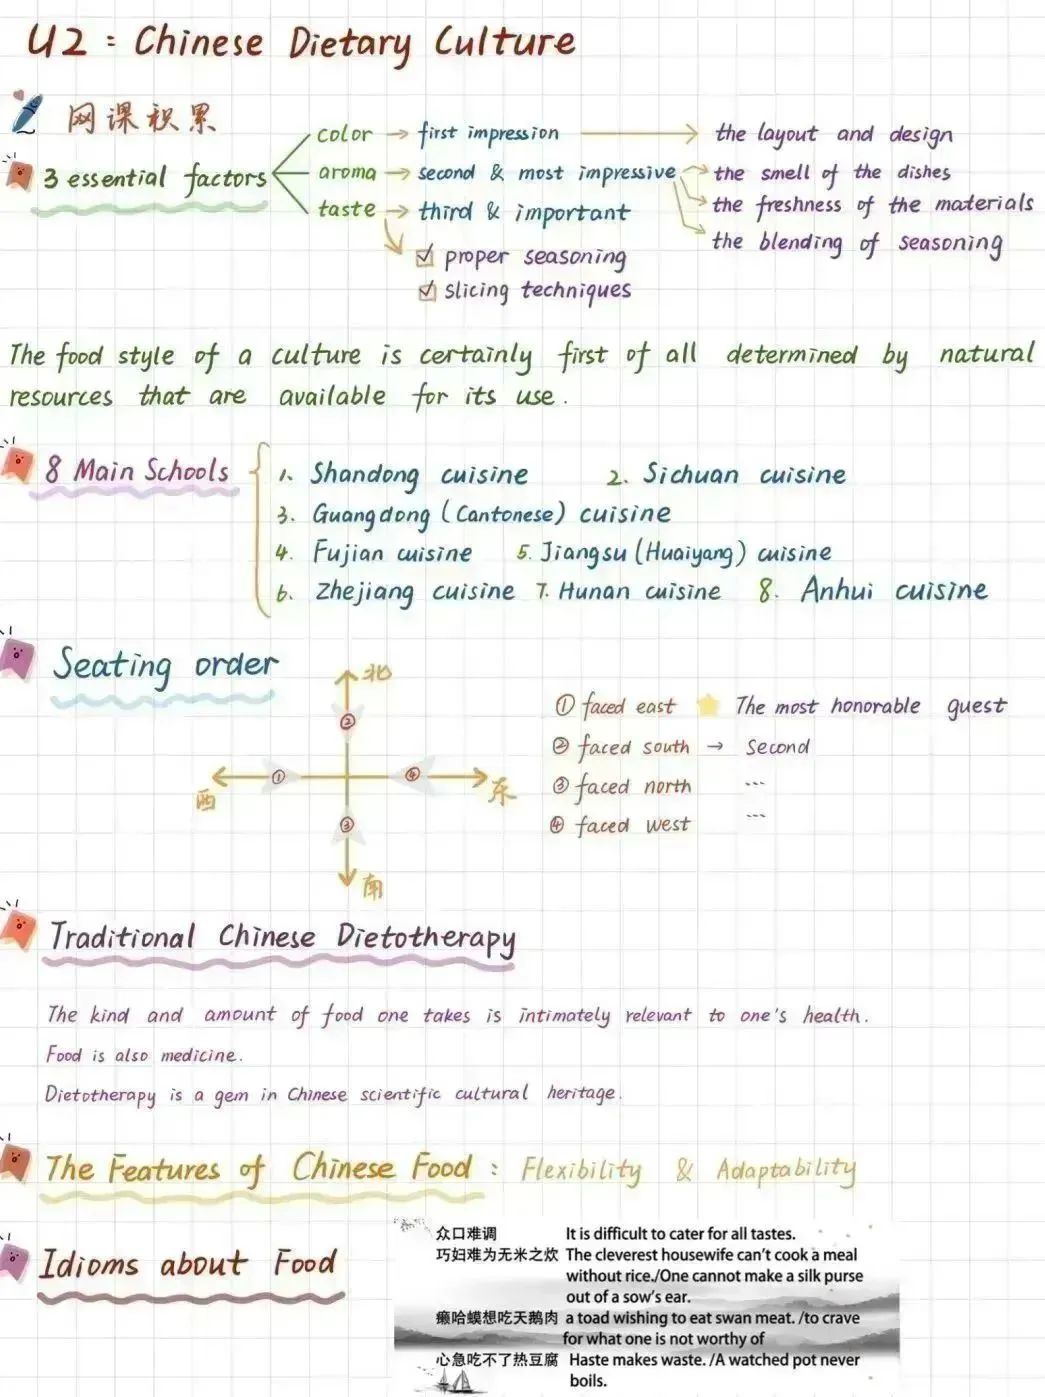 U2 : Chinese Dietary Culture
网课积累
3 essential factors
color → first impression → the layout and design
aroma → second & most impressive → the smell of the dishes
the freshness of the materials
the blending of seasoning
taste → third & important
proper seasoning
slicing techniques
The food style of a culture is certainly first of all determined by natural
resources that are available for its use.
8 Main Schools
1. Shandong cuisine 2. Sichuan cuisine
3. Guangdong (Cantonese) cuisine
4. Fujian cuisine 5. Jiangsu (Huaiyang) cuisine
6. Zhejiang cuisine 7. Hunan cuisine 8. Anhui cuisine
Seating order
北
②
① ④
西 东
③
南
① faced east The most honorable guest
② faced south → Second
③ faced north ...
④ faced west ...
Traditional Chinese Dietotherapy
The kind and amount of food one takes is intimately relevant to one's health.
Food is also medicine.
Dietotherapy is a gem in Chinese scientific cultural heritage.
The Features of Chinese Food : Flexibility & Adaptability
Idioms about Food
众口难调 It is difficult to cater for all tastes.
巧妇难为无米之炊 The cleverest housewife can't cook a meal
without rice./One cannot make a silk purse
out of a sow's ear.
癞哈蟆想吃天鹅肉 a toad wishing to eat swan meat. /to crave
for what one is not worthy of
心急吃不了热豆腐 Haste makes waste. /A watched pot never
boils.